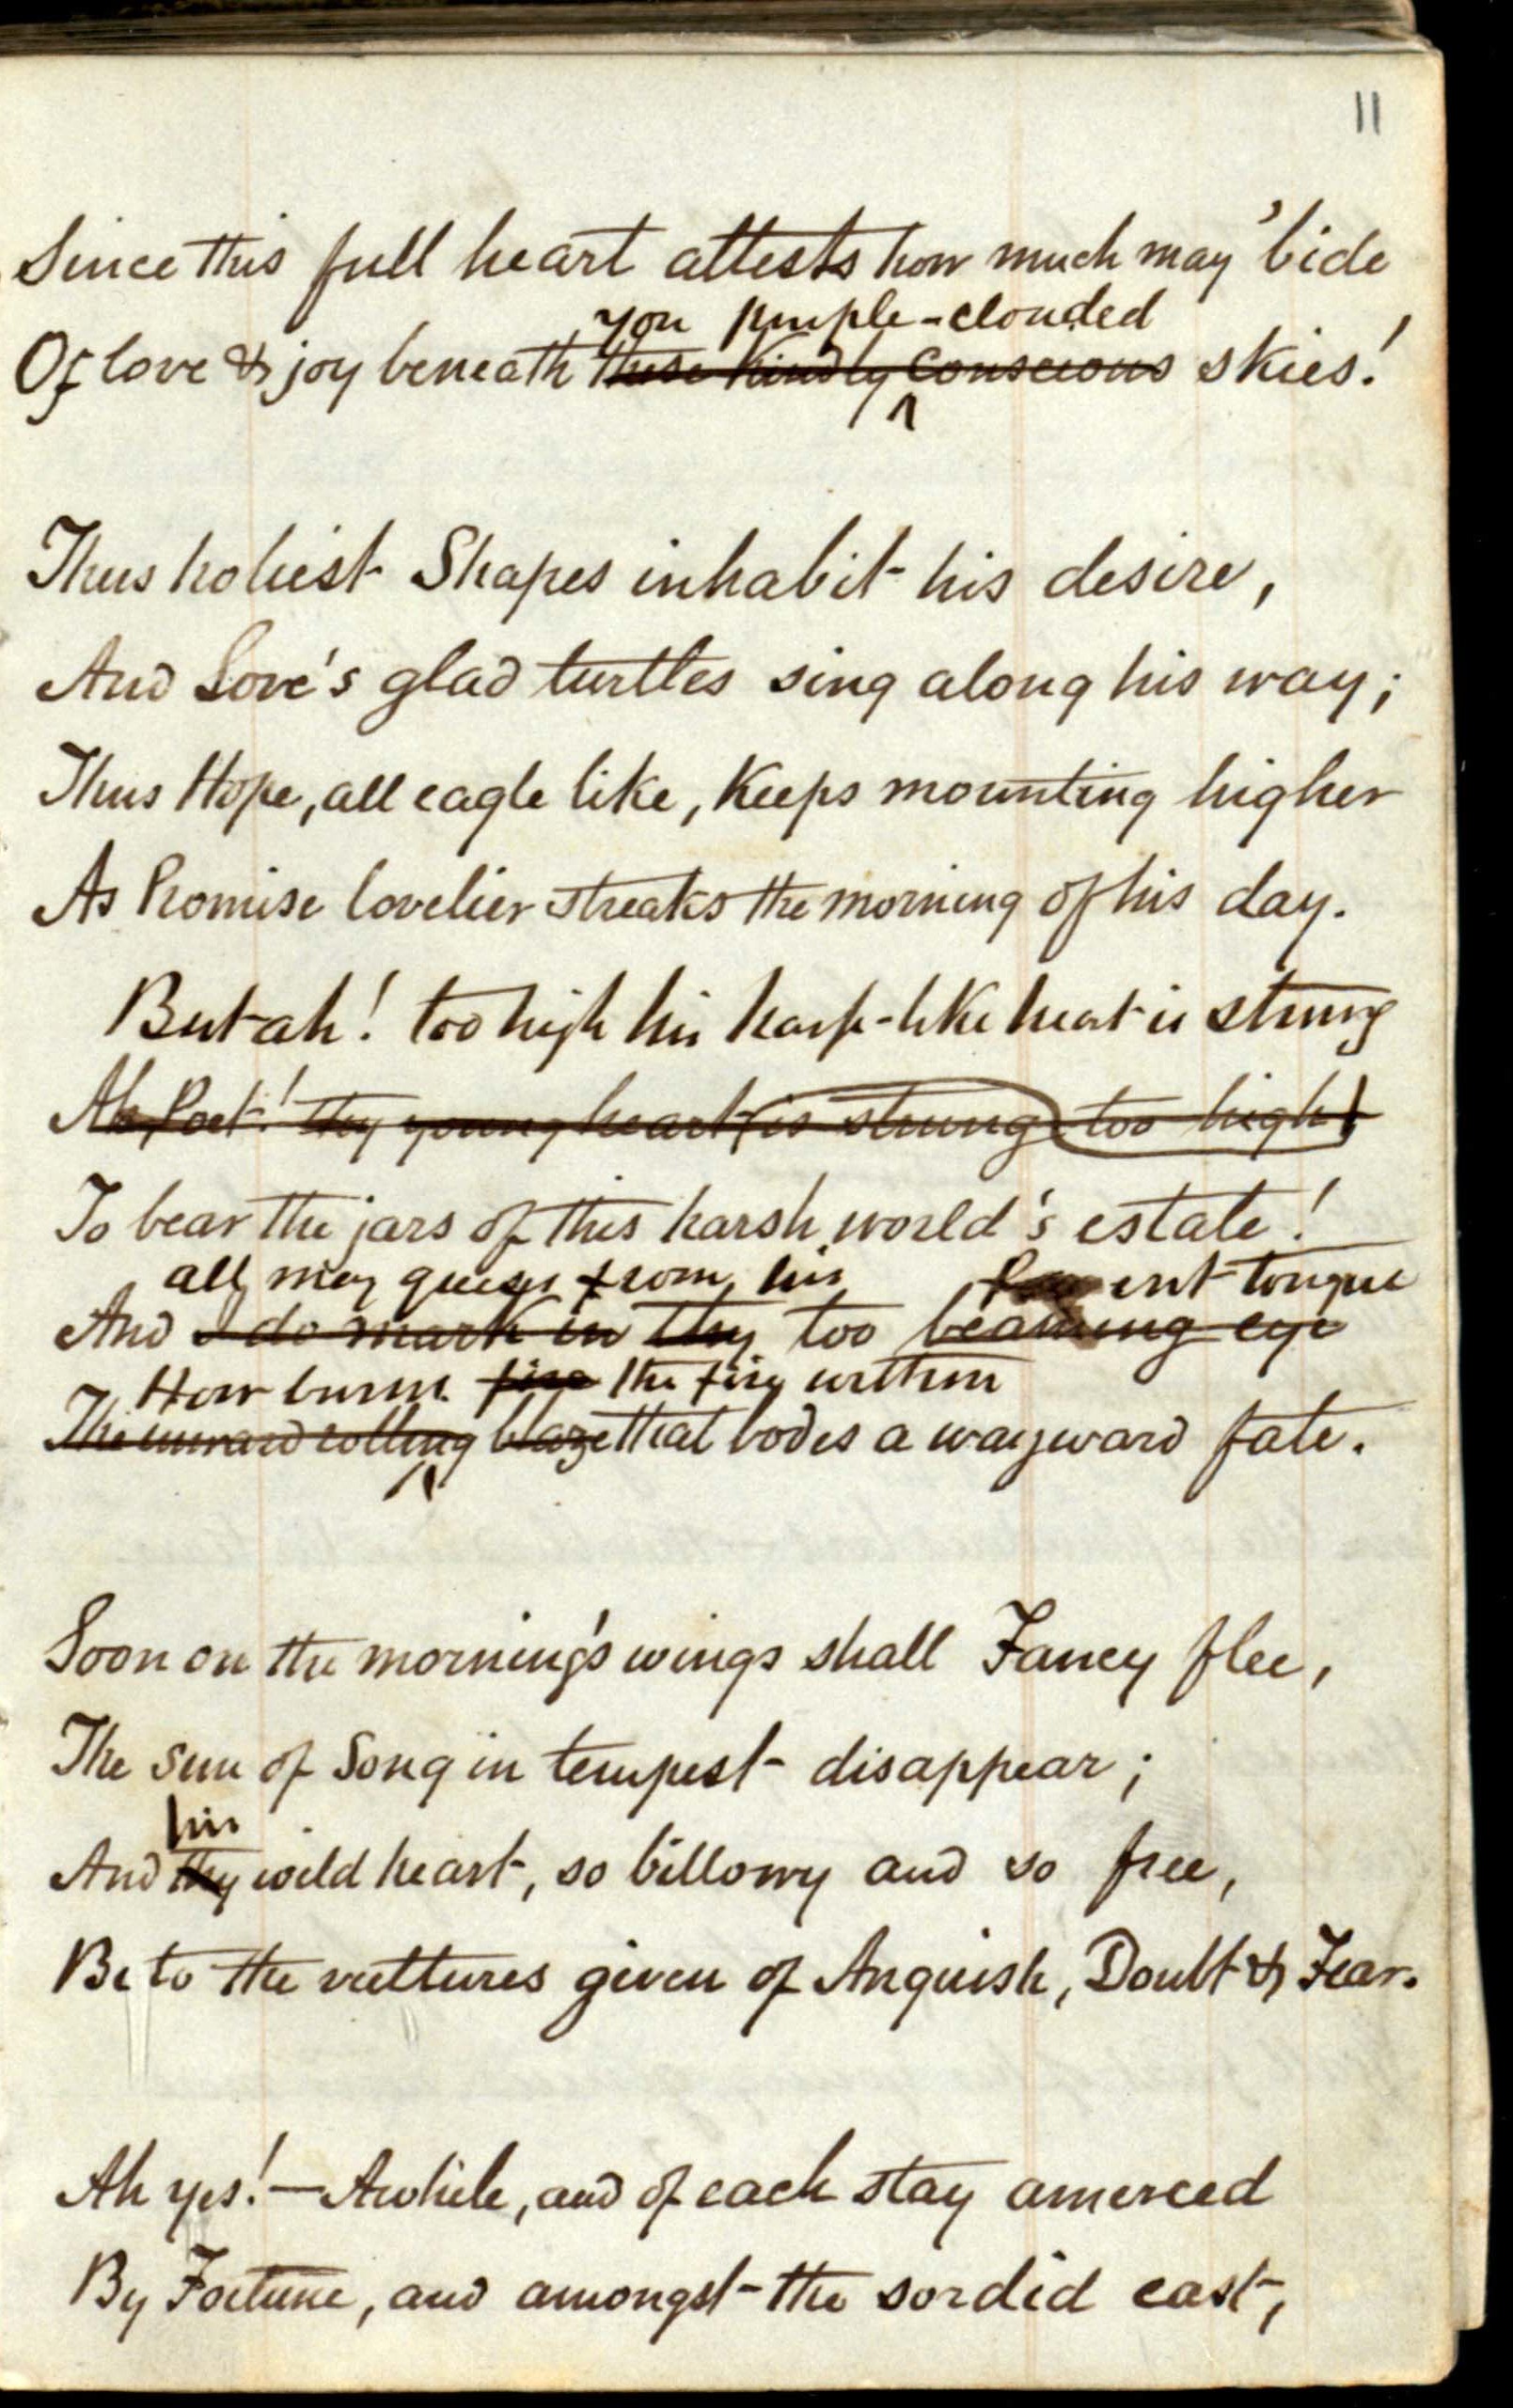 11
Since this full heart attests how much may 'bide
yon purple-clouded
Of love & joy beneath these kindly conscious skies!
Thus holiest Shapes inhabit his desire,
And Love's glad turtles sing along his way;
Thus Hope, all eagle like, keeps mounting higher
As Promise lovelier streaks the morning of his day.
But ah! too high his harp-like heart is strung
Ah, Poet! thy young heart is strung too high!
To bear the jars of this harsh world's estate!
all may guess from his ent tongue
And I do mark in thy too beaming eye
How burns fire the fire within
The inward rolling blaze that bodes a wayward fate.
Soon on the morning's wings shall Fancy flee,
The sun of Song in tempest disappear;
his
And thy wild heart, so billowy and so free,
Be to the vultures given of Anguish, Doubt & Fear.
Ah yes!—Awhile, and of each stay amerced
By Fortune, and amongst the sordid cast,